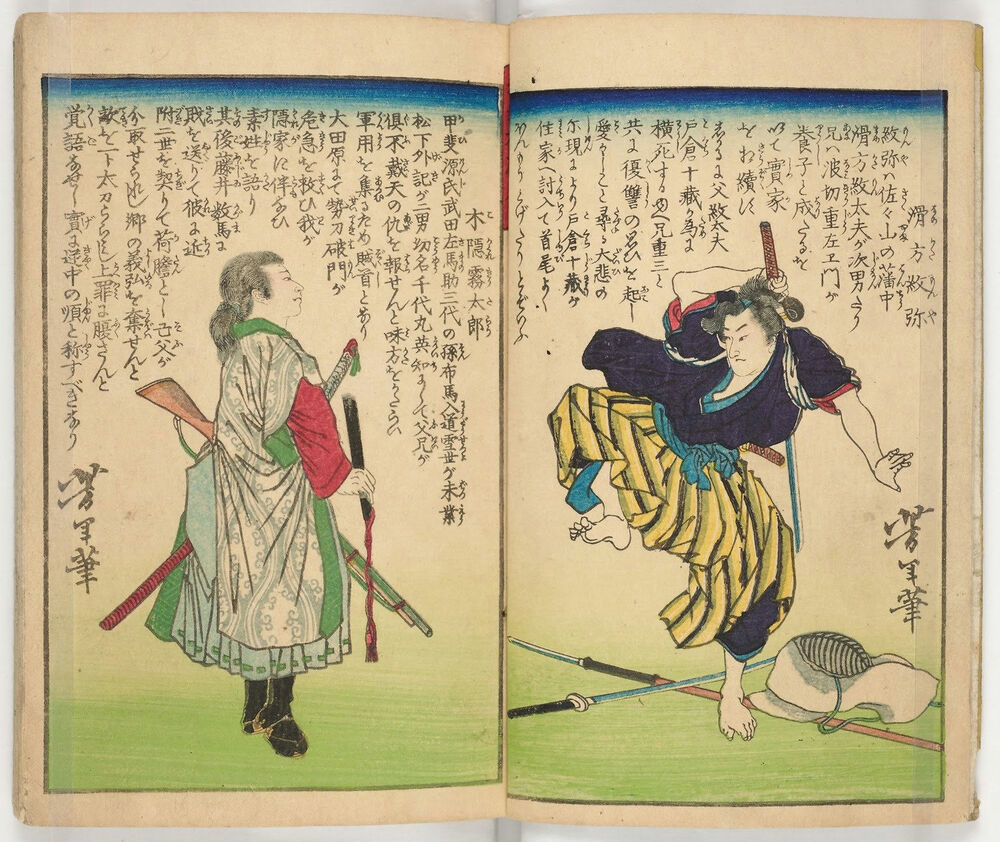 滑方救弥
救弥ハ佐々山の藩中
滑方数太夫が次男たり
兄ハ波切重左エ門が
養子と成たるを
以て實家
を相續に
しかるに父数太夫
戸倉十蔵が為に
横死するゆへ兄重三と
共に復讐の思ひを起し
愛かしこと尋る大悲の
示現により戸倉十蔵が
住家へ討入て首尾よく
ほんもうとげたりとぞいふ
芳年筆
木隠霧太郎
甲斐源氏武田左馬助三代の孫布馬入道雪世が末葉
松下外記が二男幼名千代丸英知にして父兄が
倶不戴天の仇を報せんと味方をかたらい
軍用を集るため賊首となり
大田原にて勢刀破門が
危急を救ひ我が
隠家に伴なひ
素姓を語り
其後藤井数馬に
賊を送りて彼に近
附二世を契りて荷擔とし亡父が
分取せられし郷の義弘を奪せんと
敵を一ト太刀うらみし上罪に腹さんと
覚語なせし實に逆中の順と称すべきなり
芳年筆